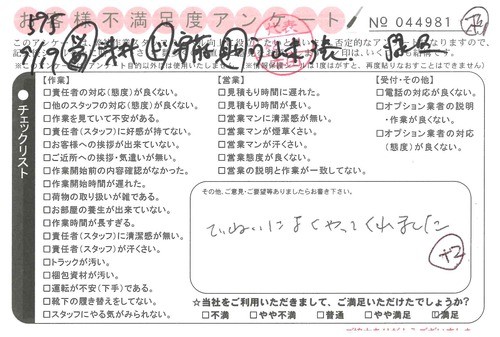 お客様不満足度アンケート
No 044981
チェックリスト
【作業】
□責任者の対応(態度)が良くない。
□他のスタッフの対応(態度)が良くない。
□作業を見ていて不安がある。
□責任者(スタッフ)に好感が持てない。
□お客様への挨拶が出来ていない。
□ご近所への挨拶・気遣いが無い。
□作業開始前の内容確認がなかった。
□作業開始時間が遅れた。
□荷物の取り扱いが雑である。
□お部屋の養生が出来ていない。
□作業時間が長すぎる。
□責任者(スタッフ)に清潔感が無い。
□責任者(スタッフ)が汗くさい。
□トラックが汚い。
□梱包資材が汚い。
□運転が不安(下手)である。
□靴下の履き替えをしてない。
□スタッフにやる気がみられない。
【営業】
□見積もり時間に遅れた。
□見積もり時間が長い。
□営業マンに清潔感が無い。
□営業マンが煙草くさい。
□営業マンが汗くさい。
□営業態度が良くない。
□営業の説明と作業が一致してない。
【受付・その他】
□電話の対応が良くない。
□オプション業者の説明・作業が良くない。
□オプション業者の対応(態度)が良くない。
その他、ご意見・ご要望等ありましたらお書き下さい。
ていねいによくやってくれました
☆当社をご利用いただきまして、ご満足いただけたでしょうか?
□不満 □やや不満 □普通 □やや満足 □満足